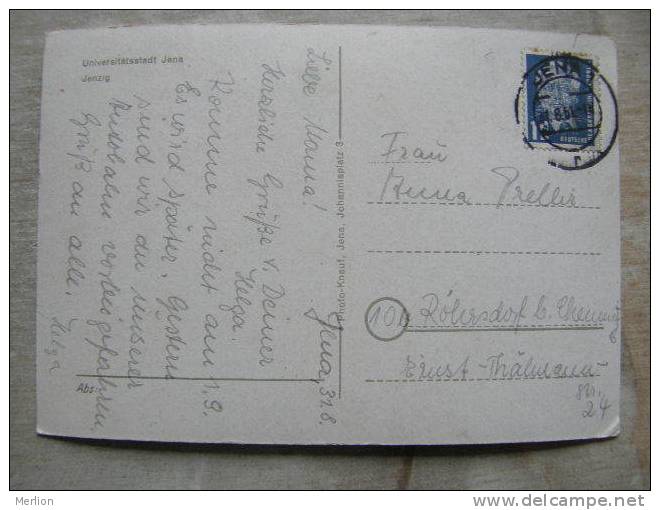 Universitätsstadt Jena
Jenzig
Jena, 31.8.
Liebe Mama!
Herzliche Grüße v. Deiner
Helga.
Komme nicht am 1.9.
Es wird später. Gestern
sind wir an unserer
Autobahn vorbeigefahren.
Gruß an alle.
Helga
Abs.:
Photo-Knauf, Jena, Johannisplatz 8
JENA
DEUTSCHE
Frau
Anna Preller
10b Röhrsdorf b. Chemnitz
Ernst-Thälmann-
Str.
24
Merlion
www.delcampe.net